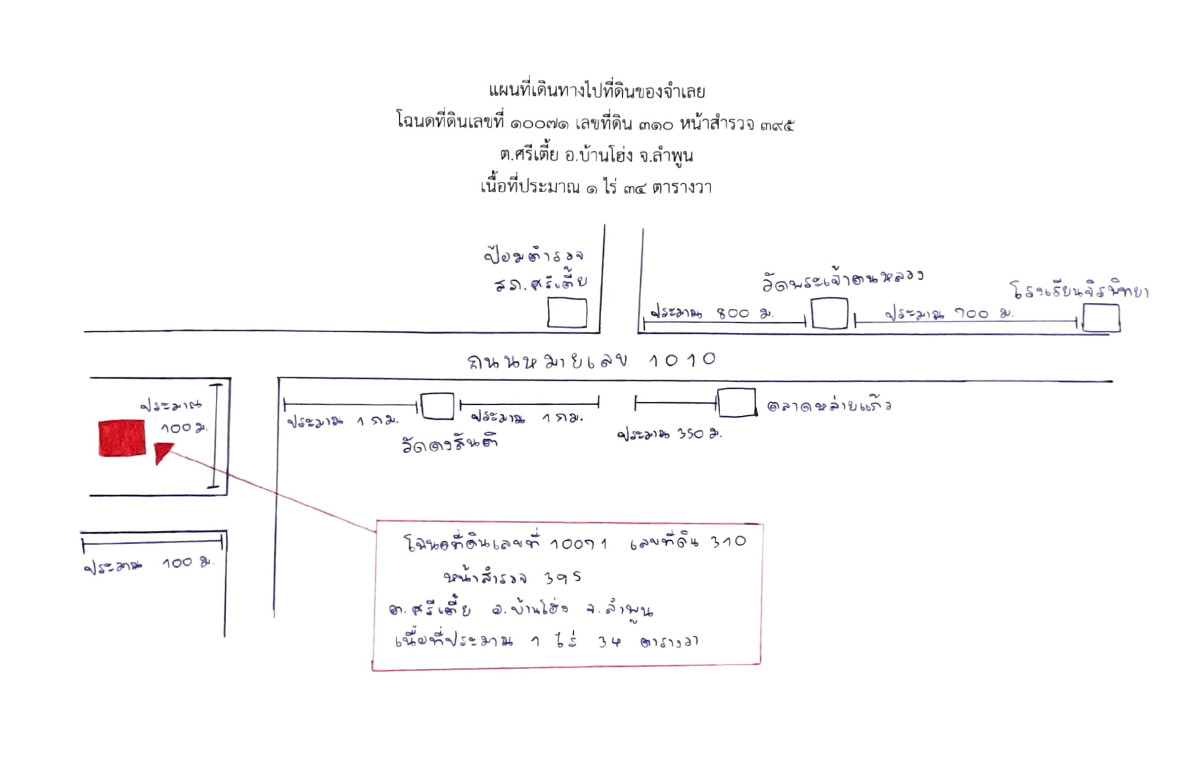 แผนที่เดินทางไปที่ดินของจำเลย
โฉนดที่ดินเลขที่ ๑๐๐๗๑ เลขที่ดิน ๓๑๐ หน้าสำรวจ ๓๙๕
ต.ศรีเตี้ย อ.บ้านโฮ่ง จ.ลำพูน
เนื้อที่ประมาณ ๑ ไร่ ๓๔ ตารางวา
ป้อมตำรวจ
สภ.ศรีเตี้ย
วัดพระเจ้าตนหลวง
โรงเรียนจิรพิทยา
ประมาณ 800 ม.
ประมาณ 700 ม.
ถนนหมายเลข 1010
ประมาณ
100 ม.
ประมาณ 1 กม.
ประมาณ 1 กม.
วัดดงสันติ
ประมาณ 350 ม.
ตลาดหล่ายแก้ว
โฉนดที่ดินเลขที่ 10071 เลขที่ดิน 310
หน้าสำรวจ 395
ต.ศรีเตี้ย อ.บ้านโฮ่ง จ.ลำพูน
เนื้อที่ประมาณ 1 ไร่ 34 ตารางวา
ประมาณ 100 ม.